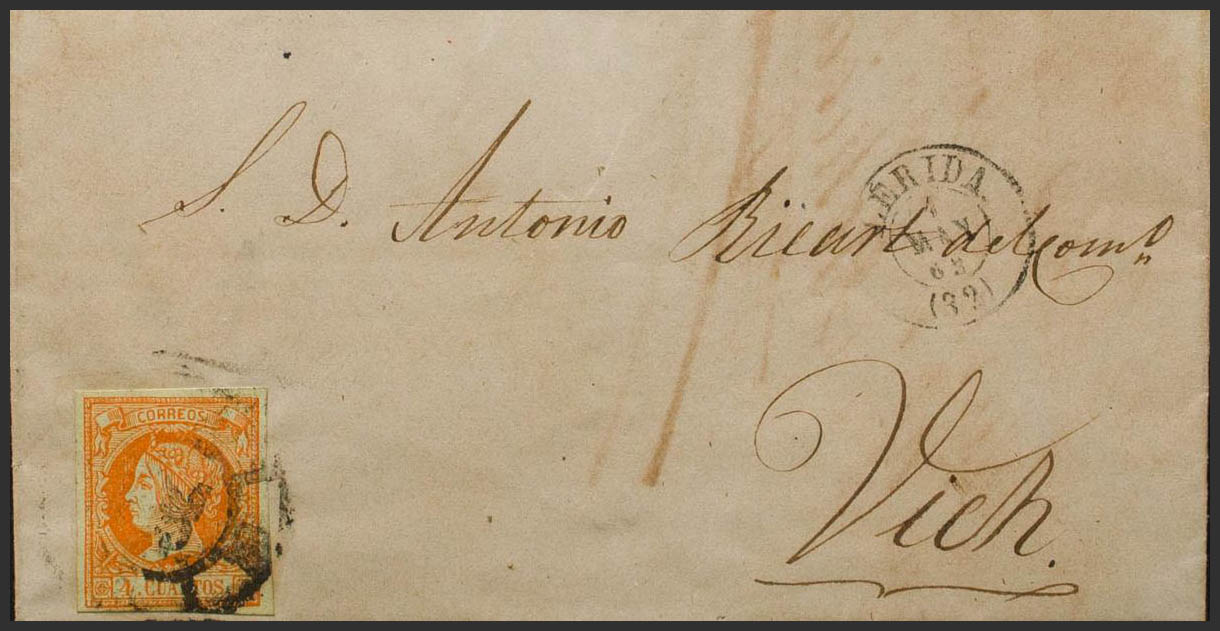 S. D. Antonio Ricart del comº
LÉRIDA.
1
MAY
63
(32)
Vich.
CORREOS
4 CUARTOS